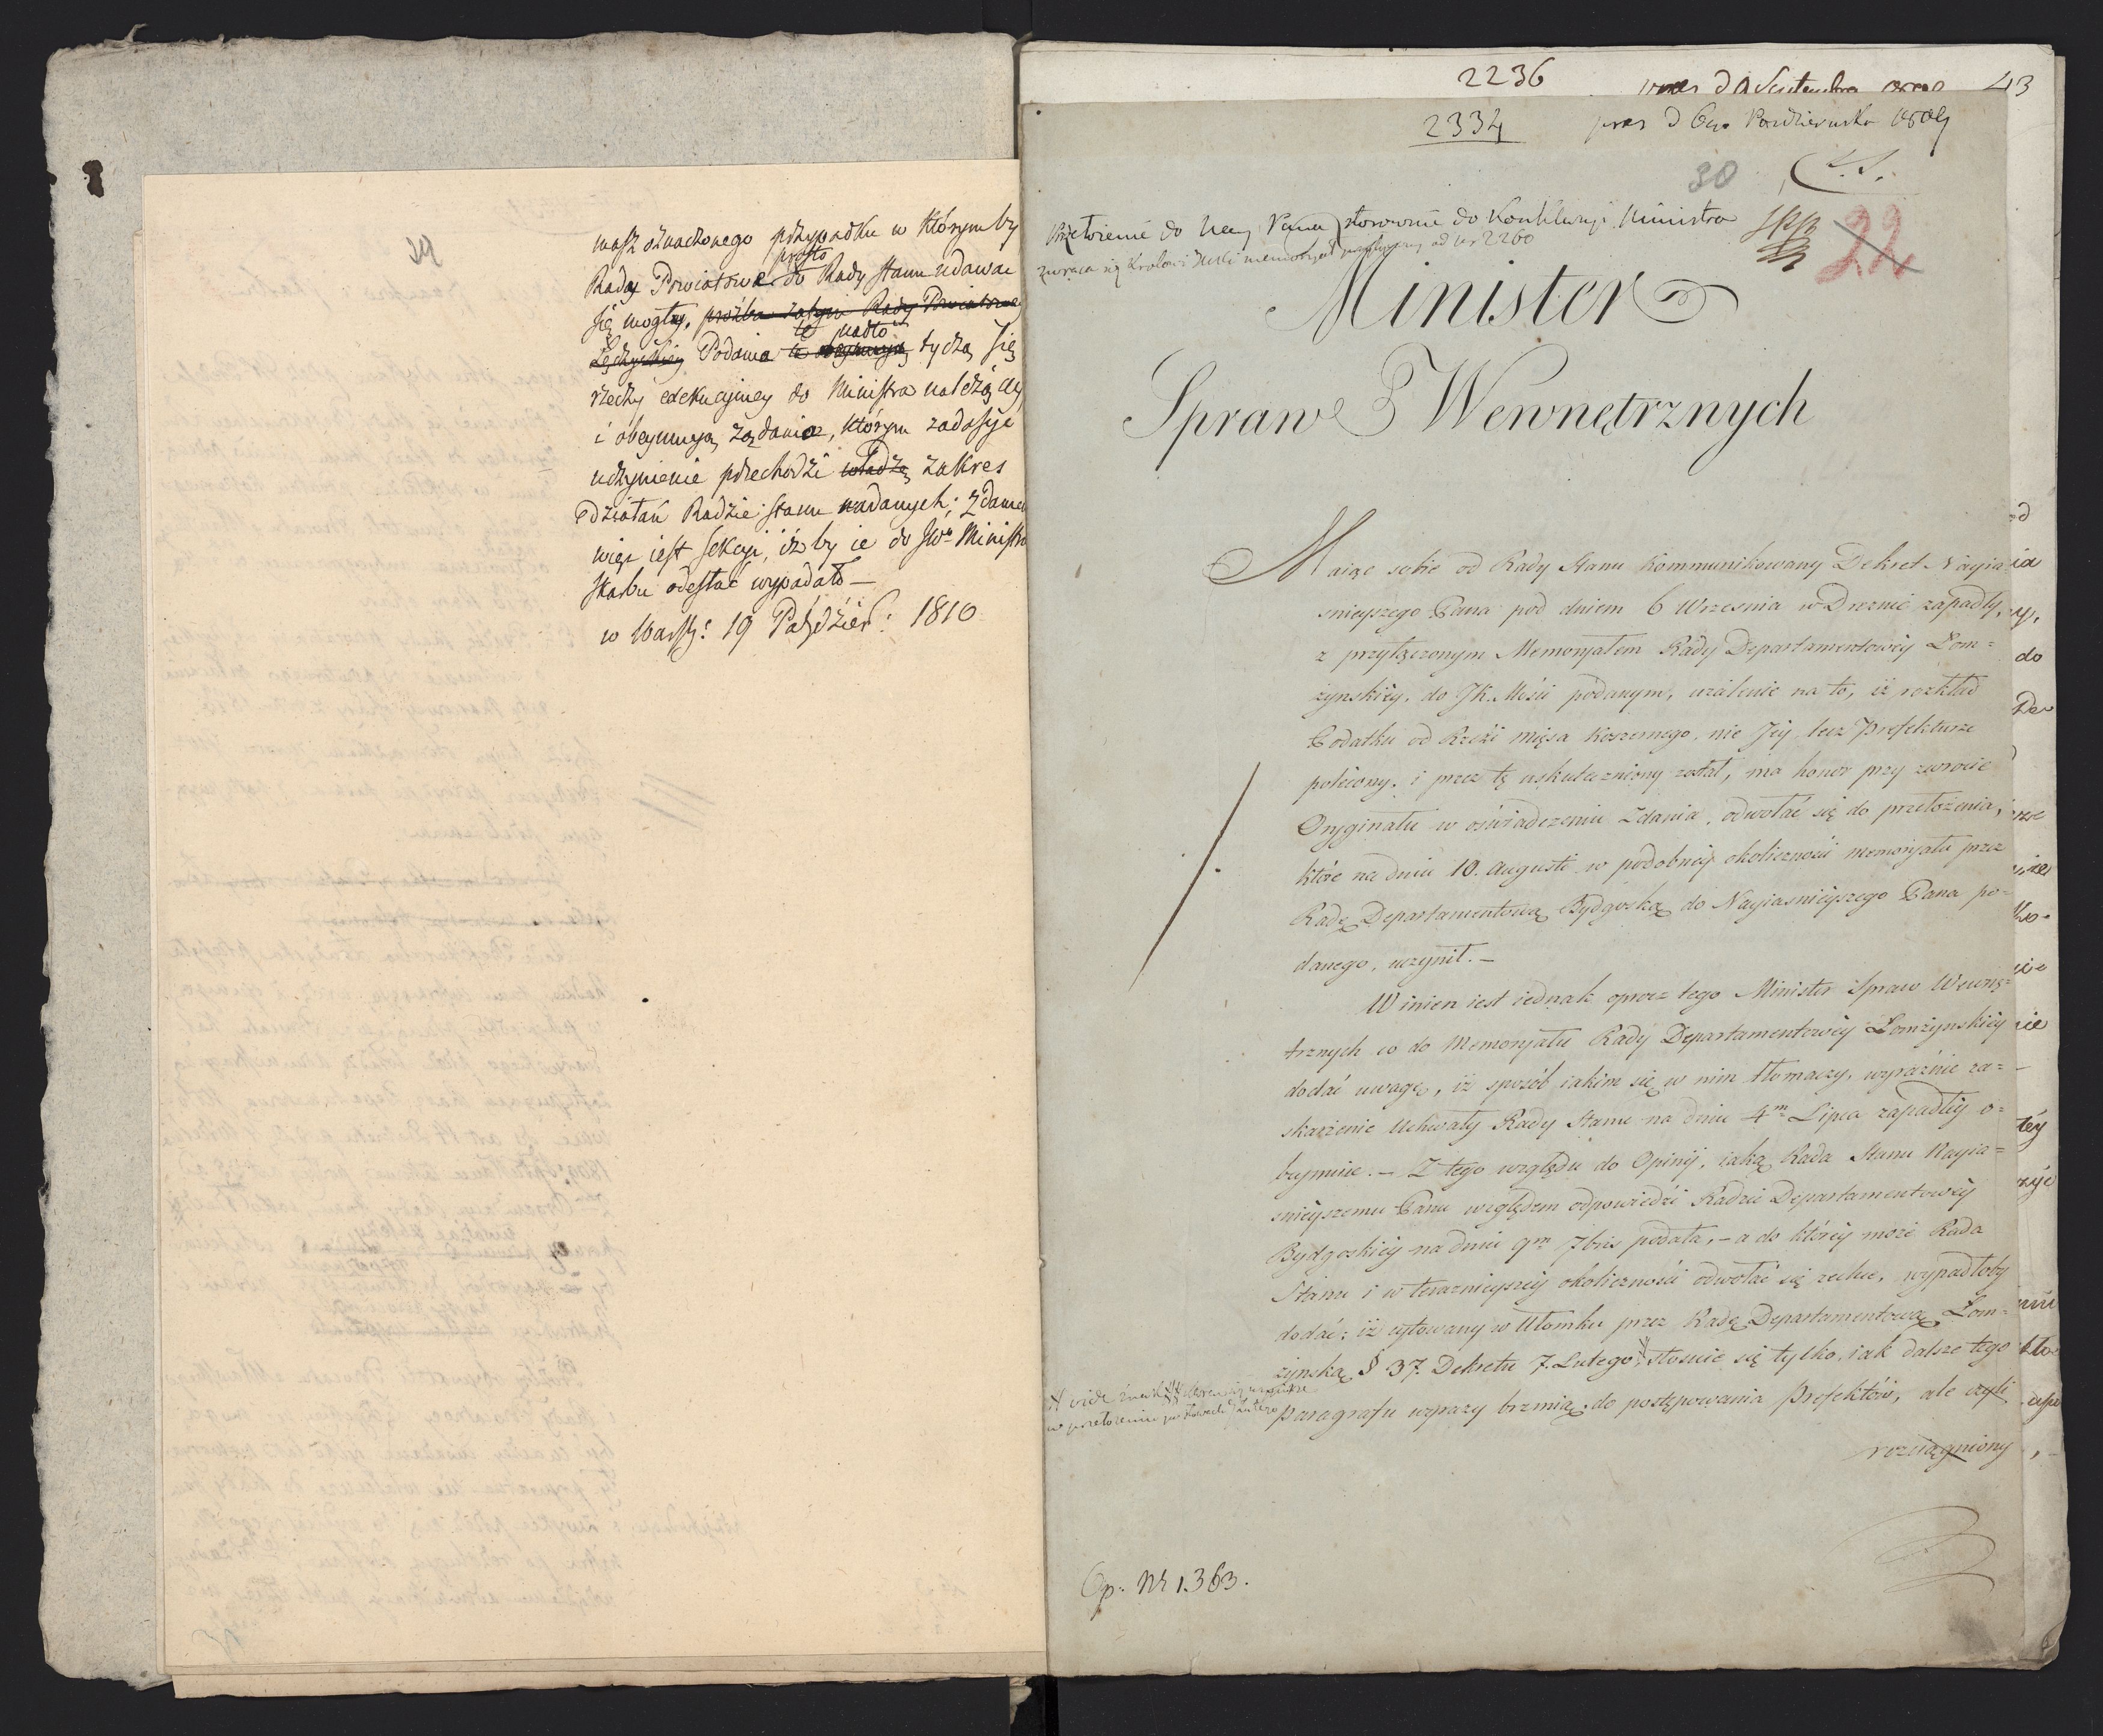 29
masz oznaczonego przypadku w którymby
prosto
Rady Powiatowe do Rady stanu udawać
się mogły, prośba zatym Rady Powiatowey
te nadto
Łęczyckiey Podania te obeymują tyczą się
rzeczy exekucyiney do Ministra należącey
i obeymują żądania, którym zadosyć
uczynienie przechodzi władzę zakres
działań Radzie stanu nadanych; Zdaniem
więc iest Sekcyi, iżby ie do JWo Ministra
skarbu odesłać wypadało —
w Warsz: 19 Paździer: 1810
2236 43
2334 pres d 6go Pazdziernika 1809
30
22
Przełożenie do Nay Pana stosownie do Konkluzyi Ministra
zwraca się Królowi od nr 2260
Minister
Spraw Wewnętrznych
Maiąc sobie od Rady Stanu kommunikowany Dekret Nayia-
snieyszego Pana pod dniem 6 Wrzesnia w Dreznie zapadły,
z przyłączonym Memoryałem Rady Departamentowéy Łom=
żynskiéy, do JK. Mości podanym, użalenie na to, iż rozkład
Podatku od Rzezi mięsa koszernego, nie Jéy lecz Prefekturze
polecony, i przez tę uskuteczniony został, ma honor przy zwrocie
Oryginału w oświadczeniu Zdania, odwołać się do przełożenia,
które na dniu 10. Augusti w podobnéy okoliczności memoryału przez
Radę Departamentową Bydgoską do Nayiasnieyszego Pana po=
danego, uczynił. —
Winien iest iednak oprocz tego Minister Spraw Wewnę=
trznych co do Memoryału Rady Departamentowéy Łomżynskiéy
dodać uwagę, iż sposób iakim się w nim tłomaczy, wyraźnie za=
skarżenie Uchwały Rady Stanu na dniu 4m Lipca zapadłéy o=
beymuie. — Z tego względu do Opinij, iaką Rada Stanu Nayia=
snieyszemu Panu względem odpowiedzi Radzie Departamentowéy
Bydgoskiéy na dniu 9m 7bris podała, — a do któréy może Rada
Stanu i w teraznieyszéy okoliczności odwołać się zechce, wypadłoby
dodać: iż cytowany w Ułomku przez Radę Departamentową Łom=
żynską § 37. Dekretu 7. Lutego stosuie się tylko, iak dalsze tego
paragrafu wyrazy brzmią do postępowania Prefektów, ale czyli
rozciągniony
vide znak
w przełożeniu po słowach 7 Lutego
Op: Nr 1363.